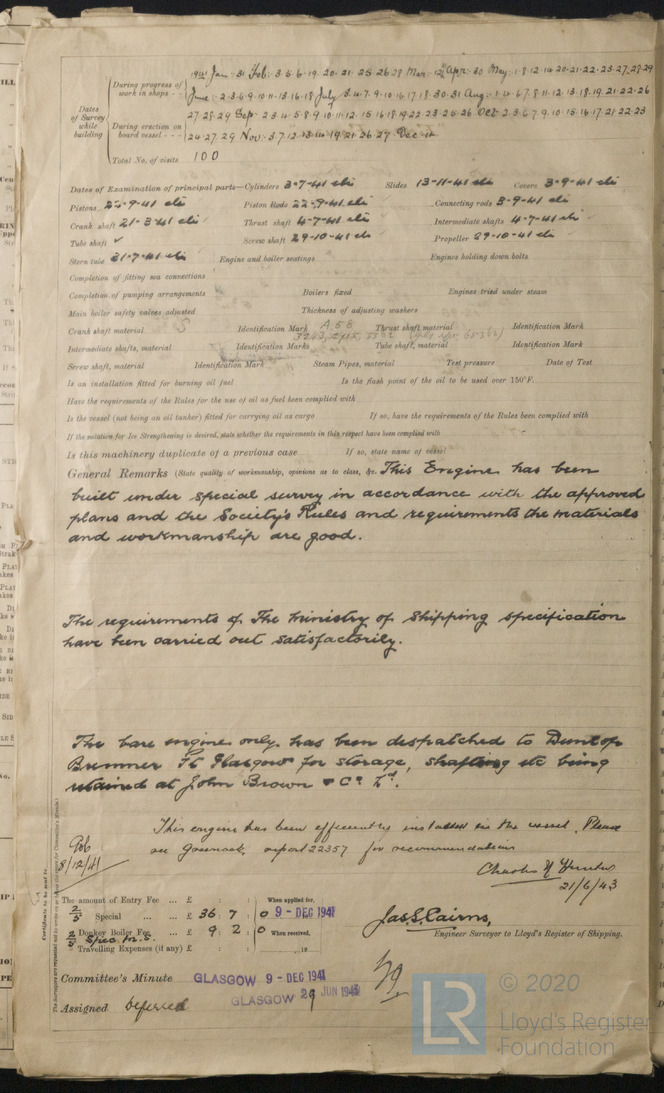 Dates of Survey while building
During progress of work in shops - -
1941 Jan · 31 Feb · 3·5·6·19·20·21·25·26·28 Mar · 12 Apr · 30 May · 1·8·12·14·20·21·22·23·27·28·29
June · 2·3·6·9·10·11·13·16·18 July 3·4·7·9·10·16·17·18·30·31 Aug · 1·4·6·7·8·11·12·13·18·19·21·22·26
During erection on board vessel - - -
27·28·29 Sep · 2·3·4·5·8·9·10·11·12·15·16·18·19·22·23·25·26 Oct · 2·3·6·7·9·10·15·16·17·21·22·23
24·27·29 Nov · 3·7·12·13·14·19·21·26·27 Dec
Total No. of visits 100
Dates of Examination of principal parts—Cylinders 3-7-41 Slides 13-11-41 Covers 3-9-41
Pistons 22-9-41 Piston Rods 22-9-41 Connecting rods 3-9-41
Crank shaft 21-3-41 Thrust shaft 4-7-41 Intermediate shafts 4-7-41
Tube shaft ✓ Screw shaft 29-10-41 Propeller 29-10-41
Stern tube 21-7-41 Engine and boiler seatings Engines holding down bolts
Completion of fitting sea connections
Completion of pumping arrangements Boilers fixed Engines tried under steam
Main boiler safety valves adjusted Thickness of adjusting washers
Crank shaft material S Identification Mark A 58 Thrust shaft material Identification Mark
Intermediate shafts, material Identification Marks Tube shaft, material Identification Mark
Screw shaft, material Identification Mark Steam Pipes, material Test pressure Date of Test
Is an installation fitted for burning oil fuel Is the flash point of the oil to be used over 150°F.
Have the requirements of the Rules for the use of oil as fuel been complied with
Is the vessel (not being an oil tanker) fitted for carrying oil as cargo If so, have the requirements of the Rules been complied with
If the notation for Ice Strengthening is desired, state whether the requirements in this respect have been complied with
Is this machinery duplicate of a previous case If so, state name of vessel
General Remarks (State quality of workmanship, opinions as to class, &c. This Engine has been
built under special survey in accordance with the approved
plans and the Society's Rules and requirements the materials
and workmanship are good.
The requirements of The Ministry of Shipping specification
have been carried out satisfactorily.
The bare engine only has been despatched to Dunlop
Bremner Glasgow for storage, shafting etc being
retained at John Brown & Co Ltd.
This engine has been efficiently installed in the vessel. Please
see Greenock report 22357 for recommendations
8/12/41
21/6/43
The amount of Entry Fee ... £ : : When applied for,
2/5 Special ... ... £ 36 . 7 : 0 9 - DEC 1941
2/5 Donkey Boiler Fee £ 9 . 2 : 0 When received,
Spec. M.S.
Travelling Expenses (if any) £ : : 19
Jas S. Cairns,
Engineer Surveyor to Lloyd's Register of Shipping.
Committee's Minute GLASGOW 9 - DEC 1941
GLASGOW 29 JUN 1943
Assigned Deferred
LR
© 2020
Lloyd's Register
Foundation